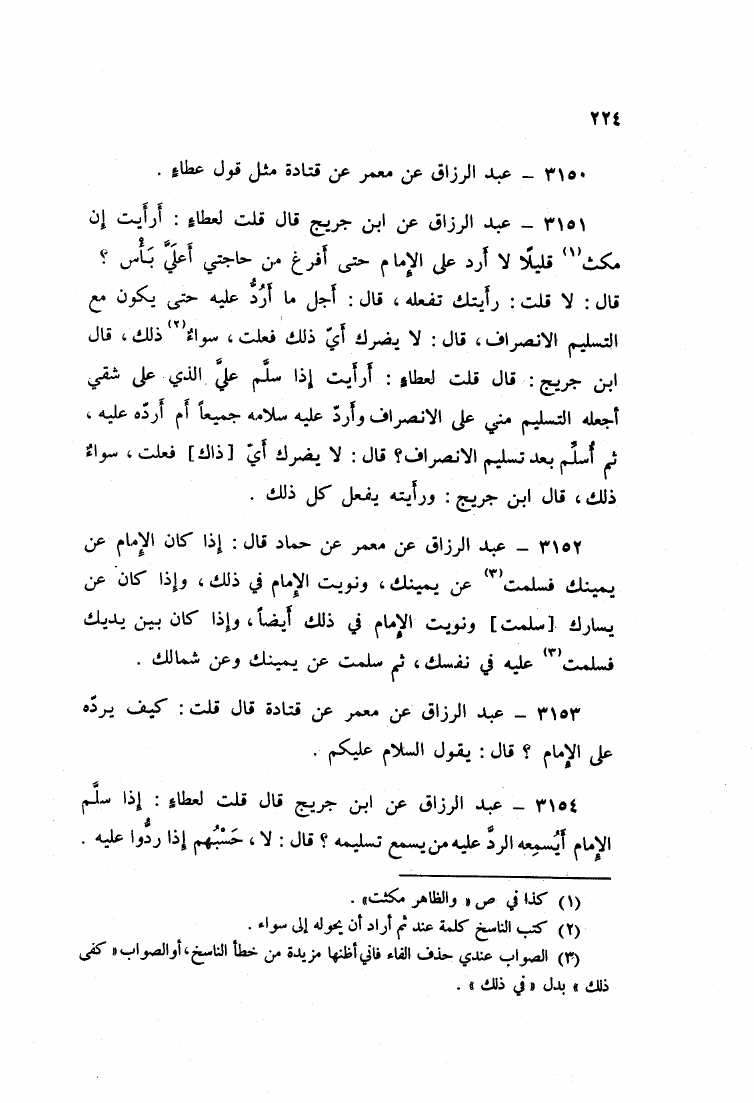 ٢٢٤
٣١٥٠ – عبد الرزاق عن معمر عن قتادة مثل قول عطاءٍ .
٣١٥١ – عبد الرزاق عن ابن جريج قال قلت لعطاءٍ : أَرأَيت إِن
مكث(١) قليلًا لا أَرد على الإِمام حتى أَفرغ من حاجتي أَعلَيَّ بَأْس ؟
قال : لا قلت : رأَيتك تفعله ، قال : أَجل ما أَرُدُّ عليه حتى يكون مع
التسليم الانصراف ، قال : لا يضرك أَيّ ذلك فعلت ، سواءٌ(٢) ذلك ، قال
ابن جريج : قال قلت لعطاءٍ : أَرأَيت إِذا سلَّم عليَّ الذي على شقي
أَجعله التسليم مني على الانصراف وأَردّ عليه سلامه جميعاً أَم أَردّه عليه ،
ثم أُسلِّم بعد تسليم الانصراف؟ قال : لا يضرك أَيّ [ذاك] فعلت ، سواءٌ
ذلك ، قال ابن جريج : ورأَيته يفعل كل ذلك .
٣١٥٢ – عبد الرزاق عن معمر عن حماد قال : إِذا كان الإِمام عن
يمينك فسلمت(٣) عن يمينك ، ونويت الإِمام في ذلك ، وإِذا كان عن
يسارك [سلمت] ونويت الإِمام في ذلك أَيضاً ، وإِذا كان بين يديك
فسلمت(٣) عليه في نفسك ، ثم سلمت عن يمينك وعن شمالك .
٣١٥٣ – عبد الرزاق عن معمر عن قتادة قال قلت : كيف يردّه
على الإِمام ؟ قال : يقول السلام عليكم .
٣١٥٤ – عبد الرزاق عن ابن جريج قال قلت لعطاءٍ : إِذا سلَّم
الإِمام أَيُسمِعه الردَّ عليه من يسمع تسليمه ؟ قال : لا ، حَسْبُهم إِذا ردُّوا عليه .
(١) كذا في ص « والظاهر مكثت» .
(٢) كتب الناسخ كلمة عند ثم أراد أن يحوله إلى سواء .
(٣) الصواب عندي حذف الفاء فاني أظنها مزيدة من خطأ الناسخ، أو الصواب « كفى
ذلك » بدل « في ذلك » .